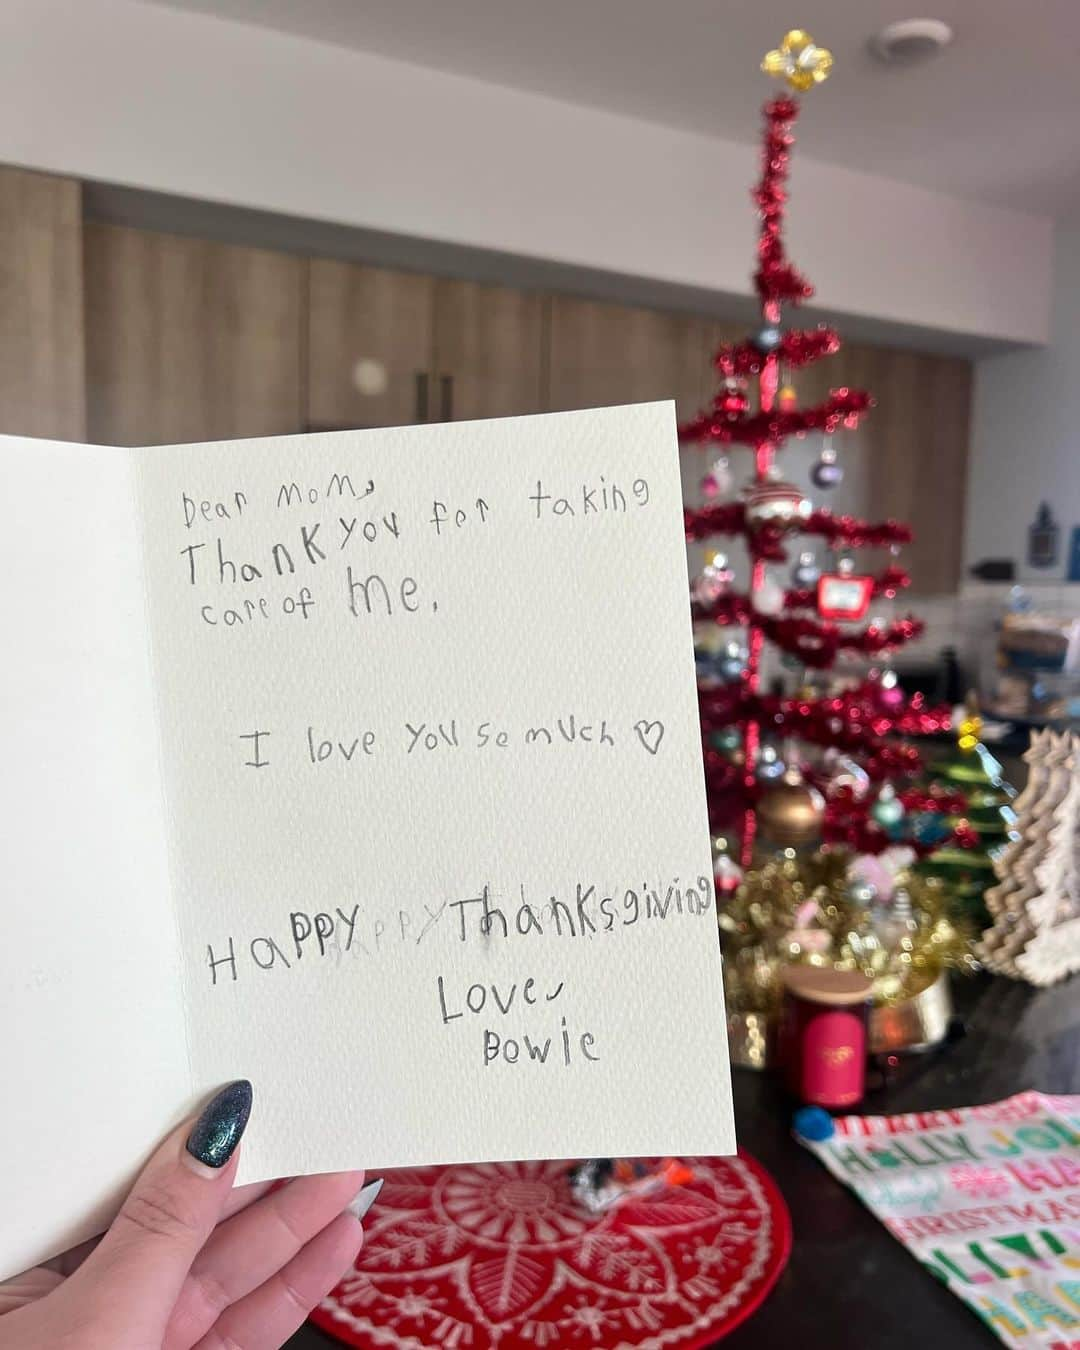 Dear MoM,
Thank you for taking
care of Me.
I love you so much ♡
Happy Thanksgiving
Love,
Bowie
HOLLY JO
CHRISTMAS